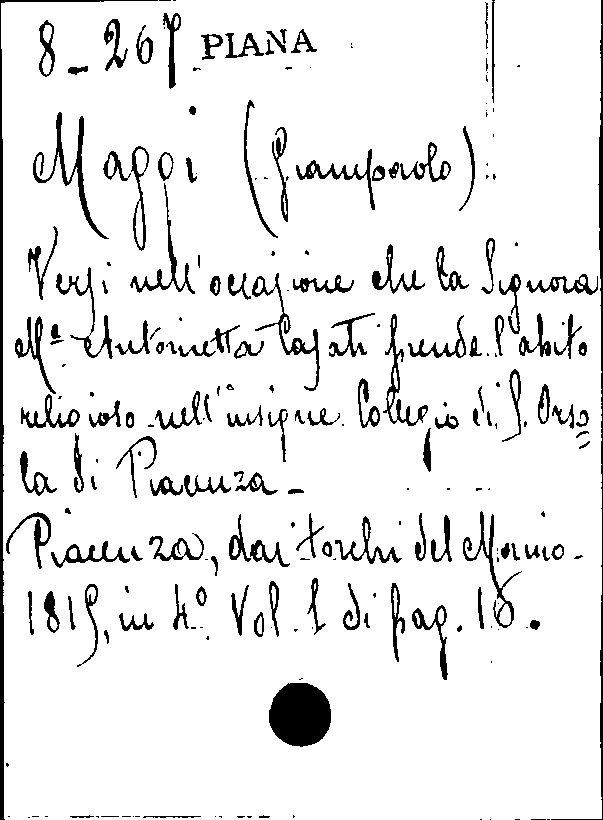 8_267 PIANA
Maggi (Giampaolo).
Versi nell'occasione che la Signora
Mª Antonietta Casati prende l'abito
religioso nell'insigne Collegio di S. Orso=
la di Piacenza_
Piacenza, dai torchi del Majno.
1815, in 4º. Vol. 1 di pag. 16.